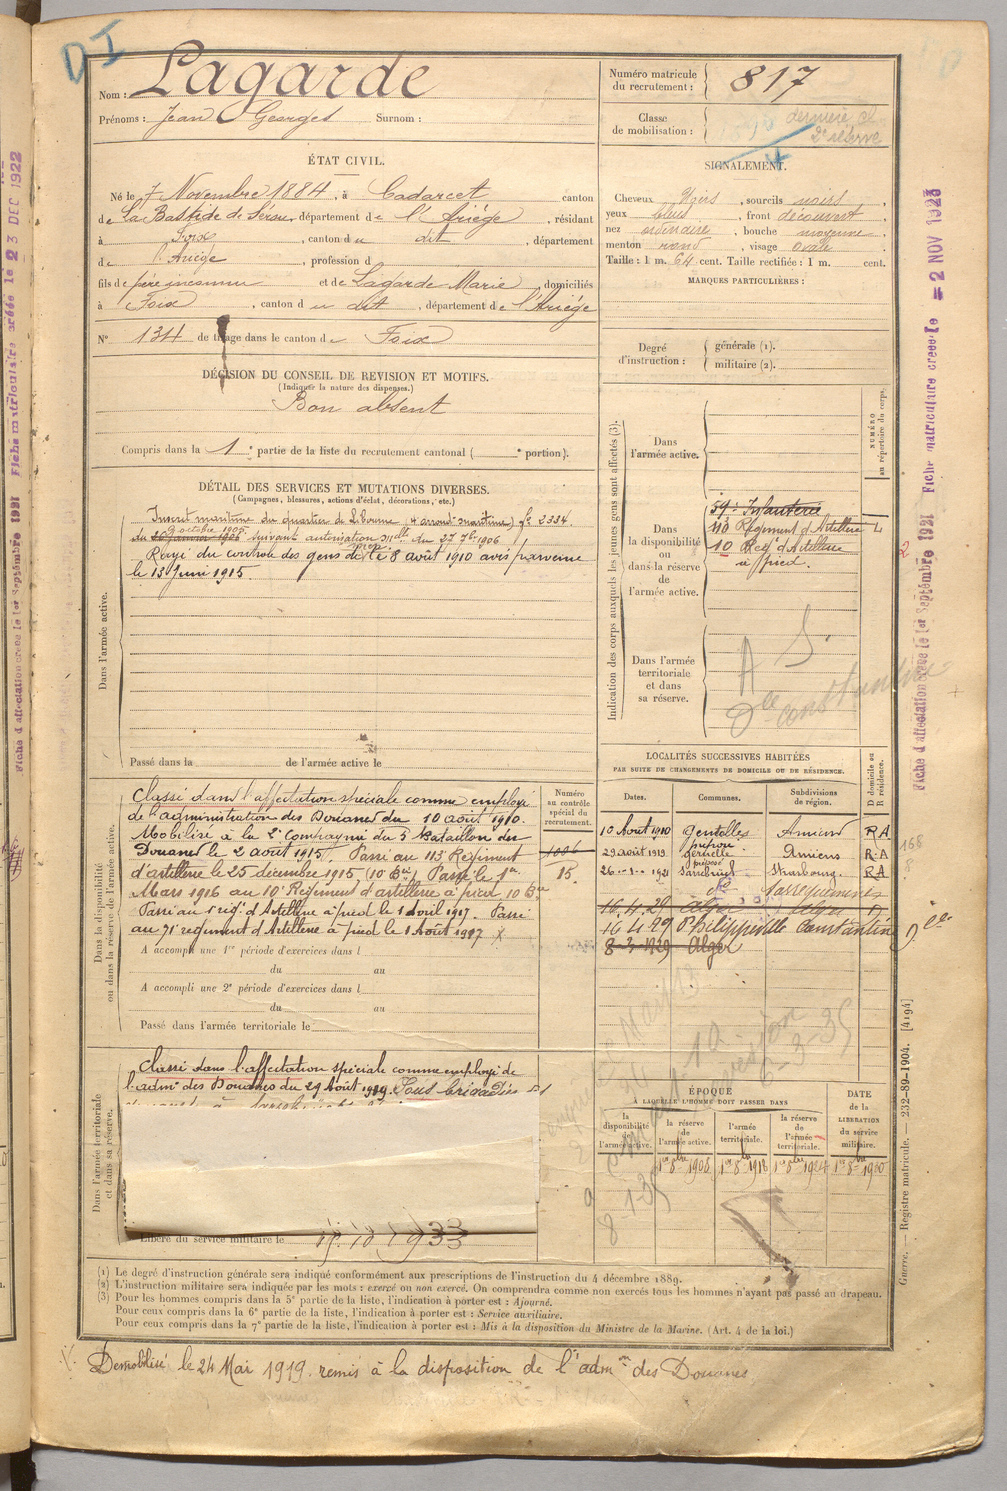 D I
Nom : Lagarde
Prénoms : Jean Georges Surnom :
Numéro matricule du recrutement : 817
Classe de mobilisation :
dernière cl
2e réserve
ÉTAT CIVIL.
Né le 7 Novembre 1884, à Cadarcet canton
de La Bastide de Sérou, département de l'Ariège, résidant
à Foix, canton du dit, département
de l'Ariège, profession d
fils de père inconnu et de Lagarde Marie, domiciliés
à Foix, canton du dit, département de l'Ariège
N° 134 de tirage dans le canton de Foix
DÉCISION DU CONSEIL DE REVISION ET MOTIFS.
(Indiquer la nature des dispenses.)
Bon absent
Compris dans la 1e partie de la liste du recrutement cantonal ( e portion).
SIGNALEMENT.
Cheveux Noirs, sourcils noirs,
yeux bleus, front découvert,
nez ordinaire, bouche moyenne,
menton rond, visage ovale
Taille : 1 m. 64 cent. Taille rectifiée : 1 m. cent.
MARQUES PARTICULIÈRES :
Degré d'instruction :
générale (1).
militaire (2).
DÉTAIL DES SERVICES ET MUTATIONS DIVERSES.
(Campagnes, blessures, actions d'éclat, décorations, etc.)
Dans l'armée active.
Inscrit maritime du quartier de Libourne (4 arrond. maritime) fo 2334
9 octobre 1905
du 20 janvier 1906 suivant autorisation Mlle du 27 7bre 1906
Rayé du contrôle des gens de mer le 8 août 1910 avis parvenu
le 13 Juin 1915.
Passé dans la de l'armée active le
Indication des corps auxquels les jeunes gens sont affectés (3).
NUMÉRO au répertoire du corps.
Dans l'armée active.
Dans la disponibilité ou dans la réserve de l'armée active.
59e Infanterie
113 Régiment d'Artillerie
10 Regt d'Artillerie
à pied.
Dans l'armée territoriale et dans sa réserve.
A S
Constantine
Dans la disponibilité ou dans la réserve de l'armée active.
Numéro au contrôle spécial du recrutement.
1006
15.
Classé dans l'affectation spéciale comme employé
de l'administration des Douanes du 10 août 1910.
Mobilisé à la 2e Compagnie du 5 Bataillon des
Douanes le 2 août 1915. Passé au 113 Régiment
d'artillerie le 25 décembre 1915 (10 Bie). Passé le 1er
Mars 1916 au 10e Régiment d'artillerie à pied 10 Bie
Passé au 1er rég. d'Artillerie à pied le 1 Avril 1917. Passé
au 71e régiment d'Artillerie à pied le 1 Août 1917 X
A accompli une 1re période d'exercices dans l
du au
A accompli une 2e période d'exercices dans l
du au
Passé dans l'armée territoriale le
LOCALITÉS SUCCESSIVES HABITÉES
PAR SUITE DE CHANGEMENTS DE DOMICILE OU DE RÉSIDENCE.
Dates. Communes. Subdivisions de région. D domicile ou R résidence.
10 Août 1910 Gentelles Amiens RA
29 août 1919 Amiens R.A
1921 Strasbourg. RA
Sarreguemines
16.4.29 Alger Alger D
16 4 29 Philippeville Constantine D
8-3-1929 Alger
Dans l'armée territoriale et dans sa réserve.
Classé dans l'affectation spéciale comme employé de
l'admon des Douanes du 29 Août 1919. Sous brigadier
Libéré du service militaire le 15.10.1933
ÉPOQUE
À LAQUELLE L'HOMME DOIT PASSER DANS
la disponibilité de l'armée active.
la réserve de l'armée active.
l'armée territoriale.
la réserve de l'armée territoriale.
DATE de la LIBÉRATION du service militaire.
1er 8bre 1908 1er 8bre 1918 1er 8bre 1924 1er 8bre 1930
(1) Le degré d'instruction générale sera indiqué conformément aux prescriptions de l'instruction du 4 décembre 1889.
(2) L'instruction militaire sera indiquée par les mots : exercé ou non exercé. On comprendra comme non exercés tous les hommes n'ayant pas passé au drapeau.
(3) Pour les hommes compris dans la 5e partie de la liste, l'indication à porter est : Ajourné.
Pour ceux compris dans la 6e partie de la liste, l'indication à porter est : Service auxiliaire.
Pour ceux compris dans la 7e partie de la liste, l'indication à porter est : Mis à la disposition du Ministre de la Marine. (Art. 4 de la loi.)
X. Démobilisé le 24 Mai 1919. remis à la disposition de l'admon des Douanes
Guerre. — Registre matricule. — 232-89-1904. [4194]
Fiche d'affectation créée le 1er Septembre 1921 Fiche matriculaire créée le = 2 NOV 1923
Fiche d'affectation créée le 1er Septembre 1921 Fiche matriculaire créée le 23 DEC 1922